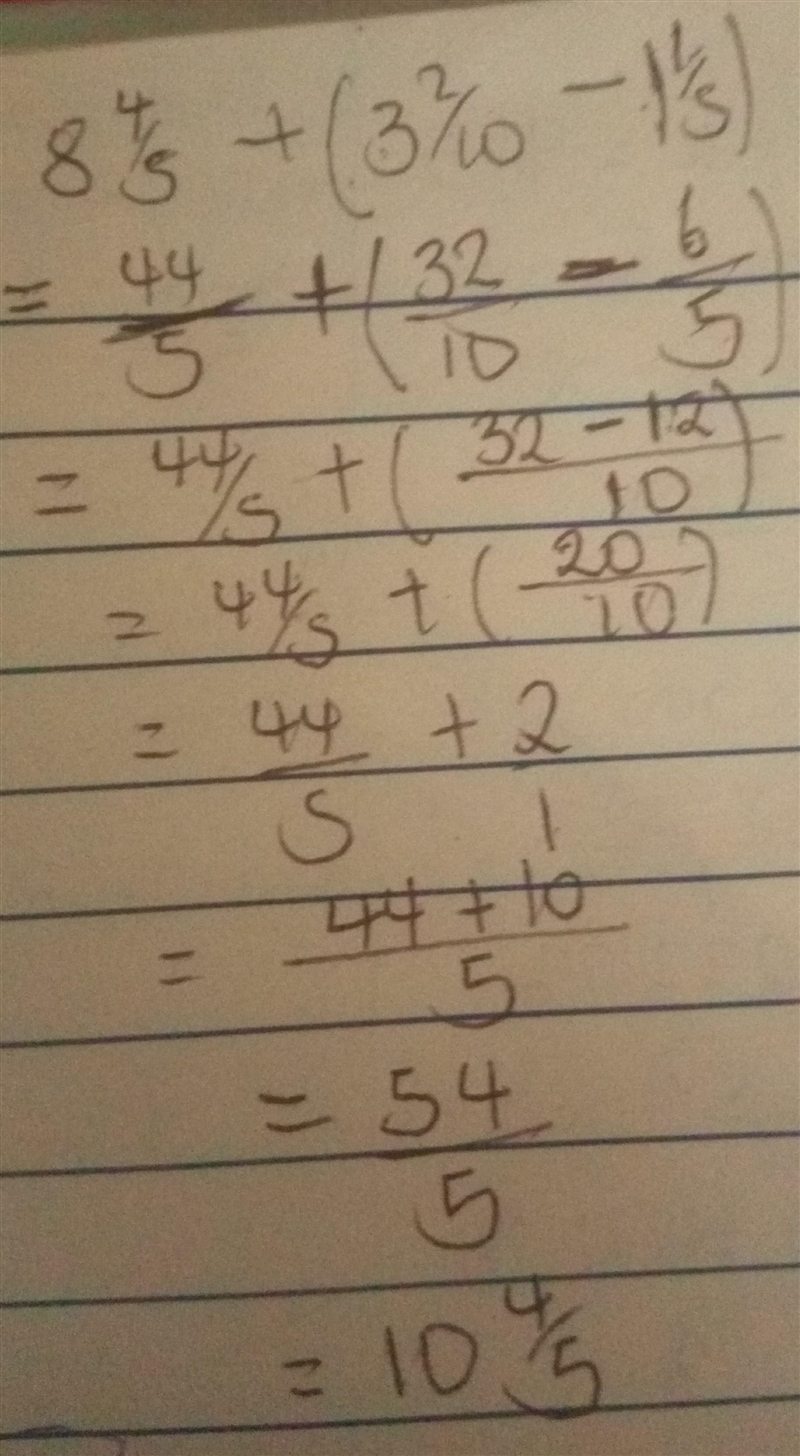 8 4/5 + (3 2/10 - 1 1/5)
= 44/5 + (32/10 - 6/5)
= 44/5 + (32 - 12/10)
= 44/5 + (20/10)
= 44/5 + 2/1
= 44 + 10/5
= 54/5
= 10 4/5